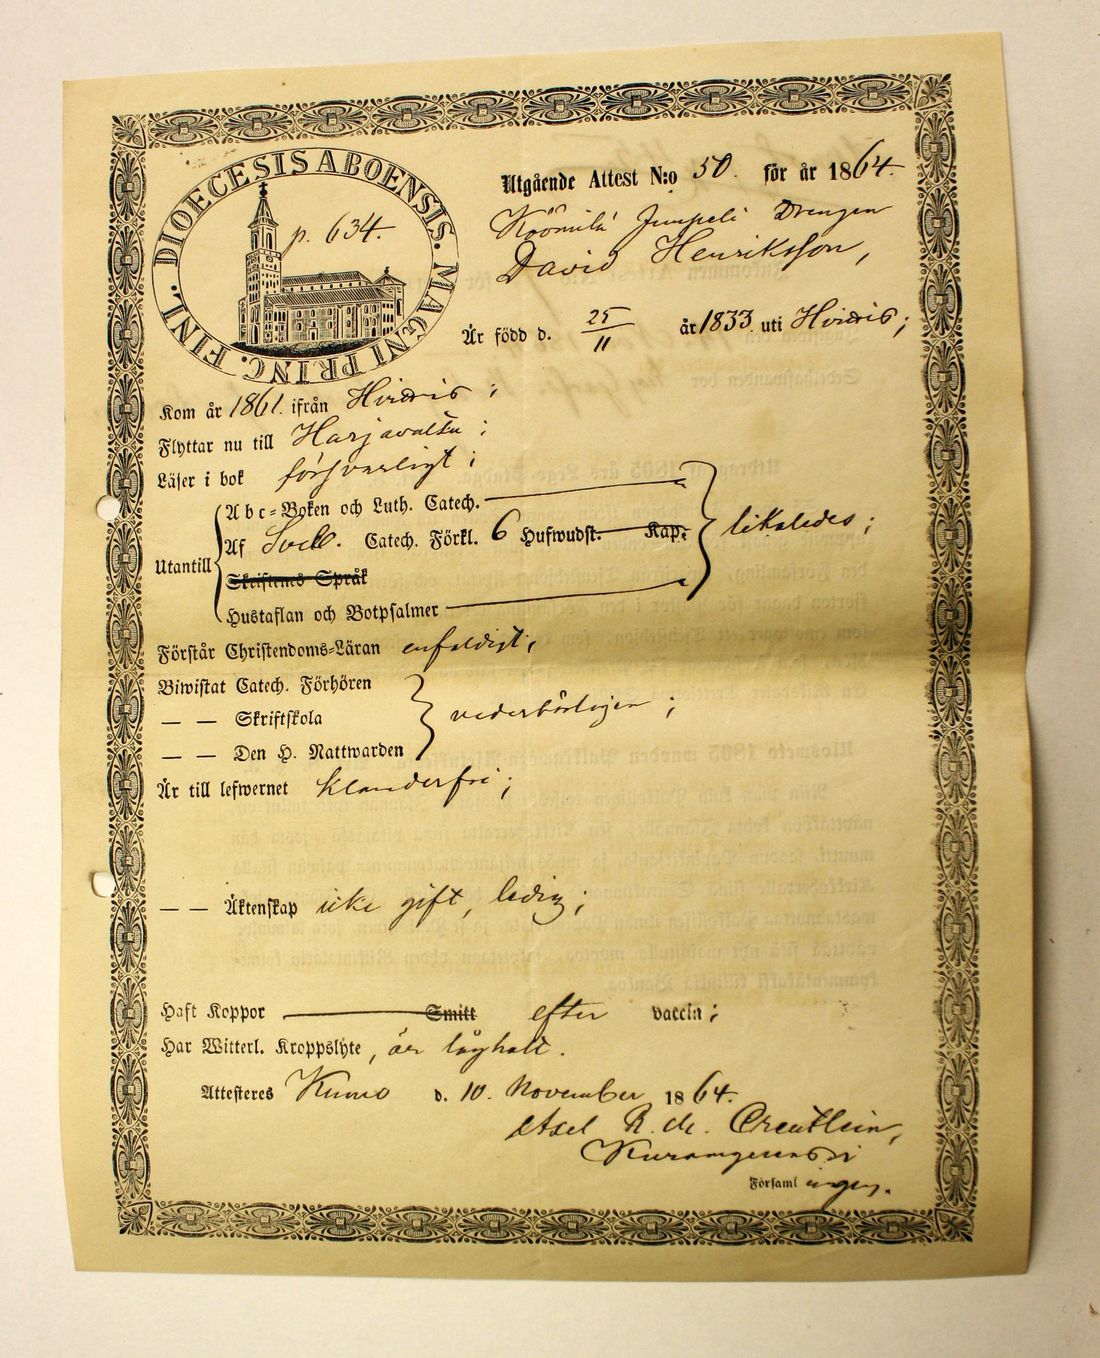 DIOECESIS ABOENSIS. MAGNI PRINC. FINL.
p. 634.
Utgående Attest N:o 50. för år 1864.
Drengen
David Henriksson,
Är född d. 25/11 år 1833 uti Hvittis;
Kom år 1861. ifrån Hvittis;
Flyttar nu till Harjavalta;
Läser i bok försvarligt;
Abc=Boken och Luth. Catech.
Utantill Af Sveb. Catech. Förkl. 6 Hufwudst. Kap. likaledes;
Skriftenes Språk
Hustaflan och Botpsalmer
Förstår Christendoms=Läran enfaldigt;
Biwistat Catech. Förhören
— — Skriftskola vederbörligen;
— — Den H. Nattwarden
Är till lefwernet klanderfri;
— — Äktenskap icke gift, ledig;
Haft Koppor Smitt efter vaccin;
Har Witterl. Kroppslyte, är låghalt.
Attesteres Kumo d. 10. November 1864.
Axel R. de. Creutlein,
Församl